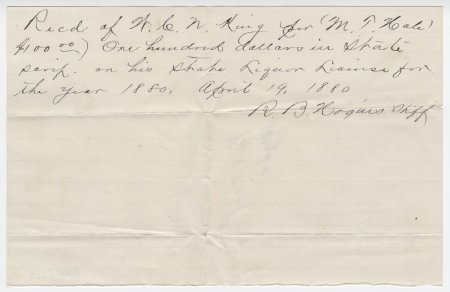 Recd of W. C. N. King for (M. T. Hale)
$100 00) One hundred dollars in State
scrip. on his State Liquor License for
the year 1880. April 19, 1880
R. B. Hogins Shff